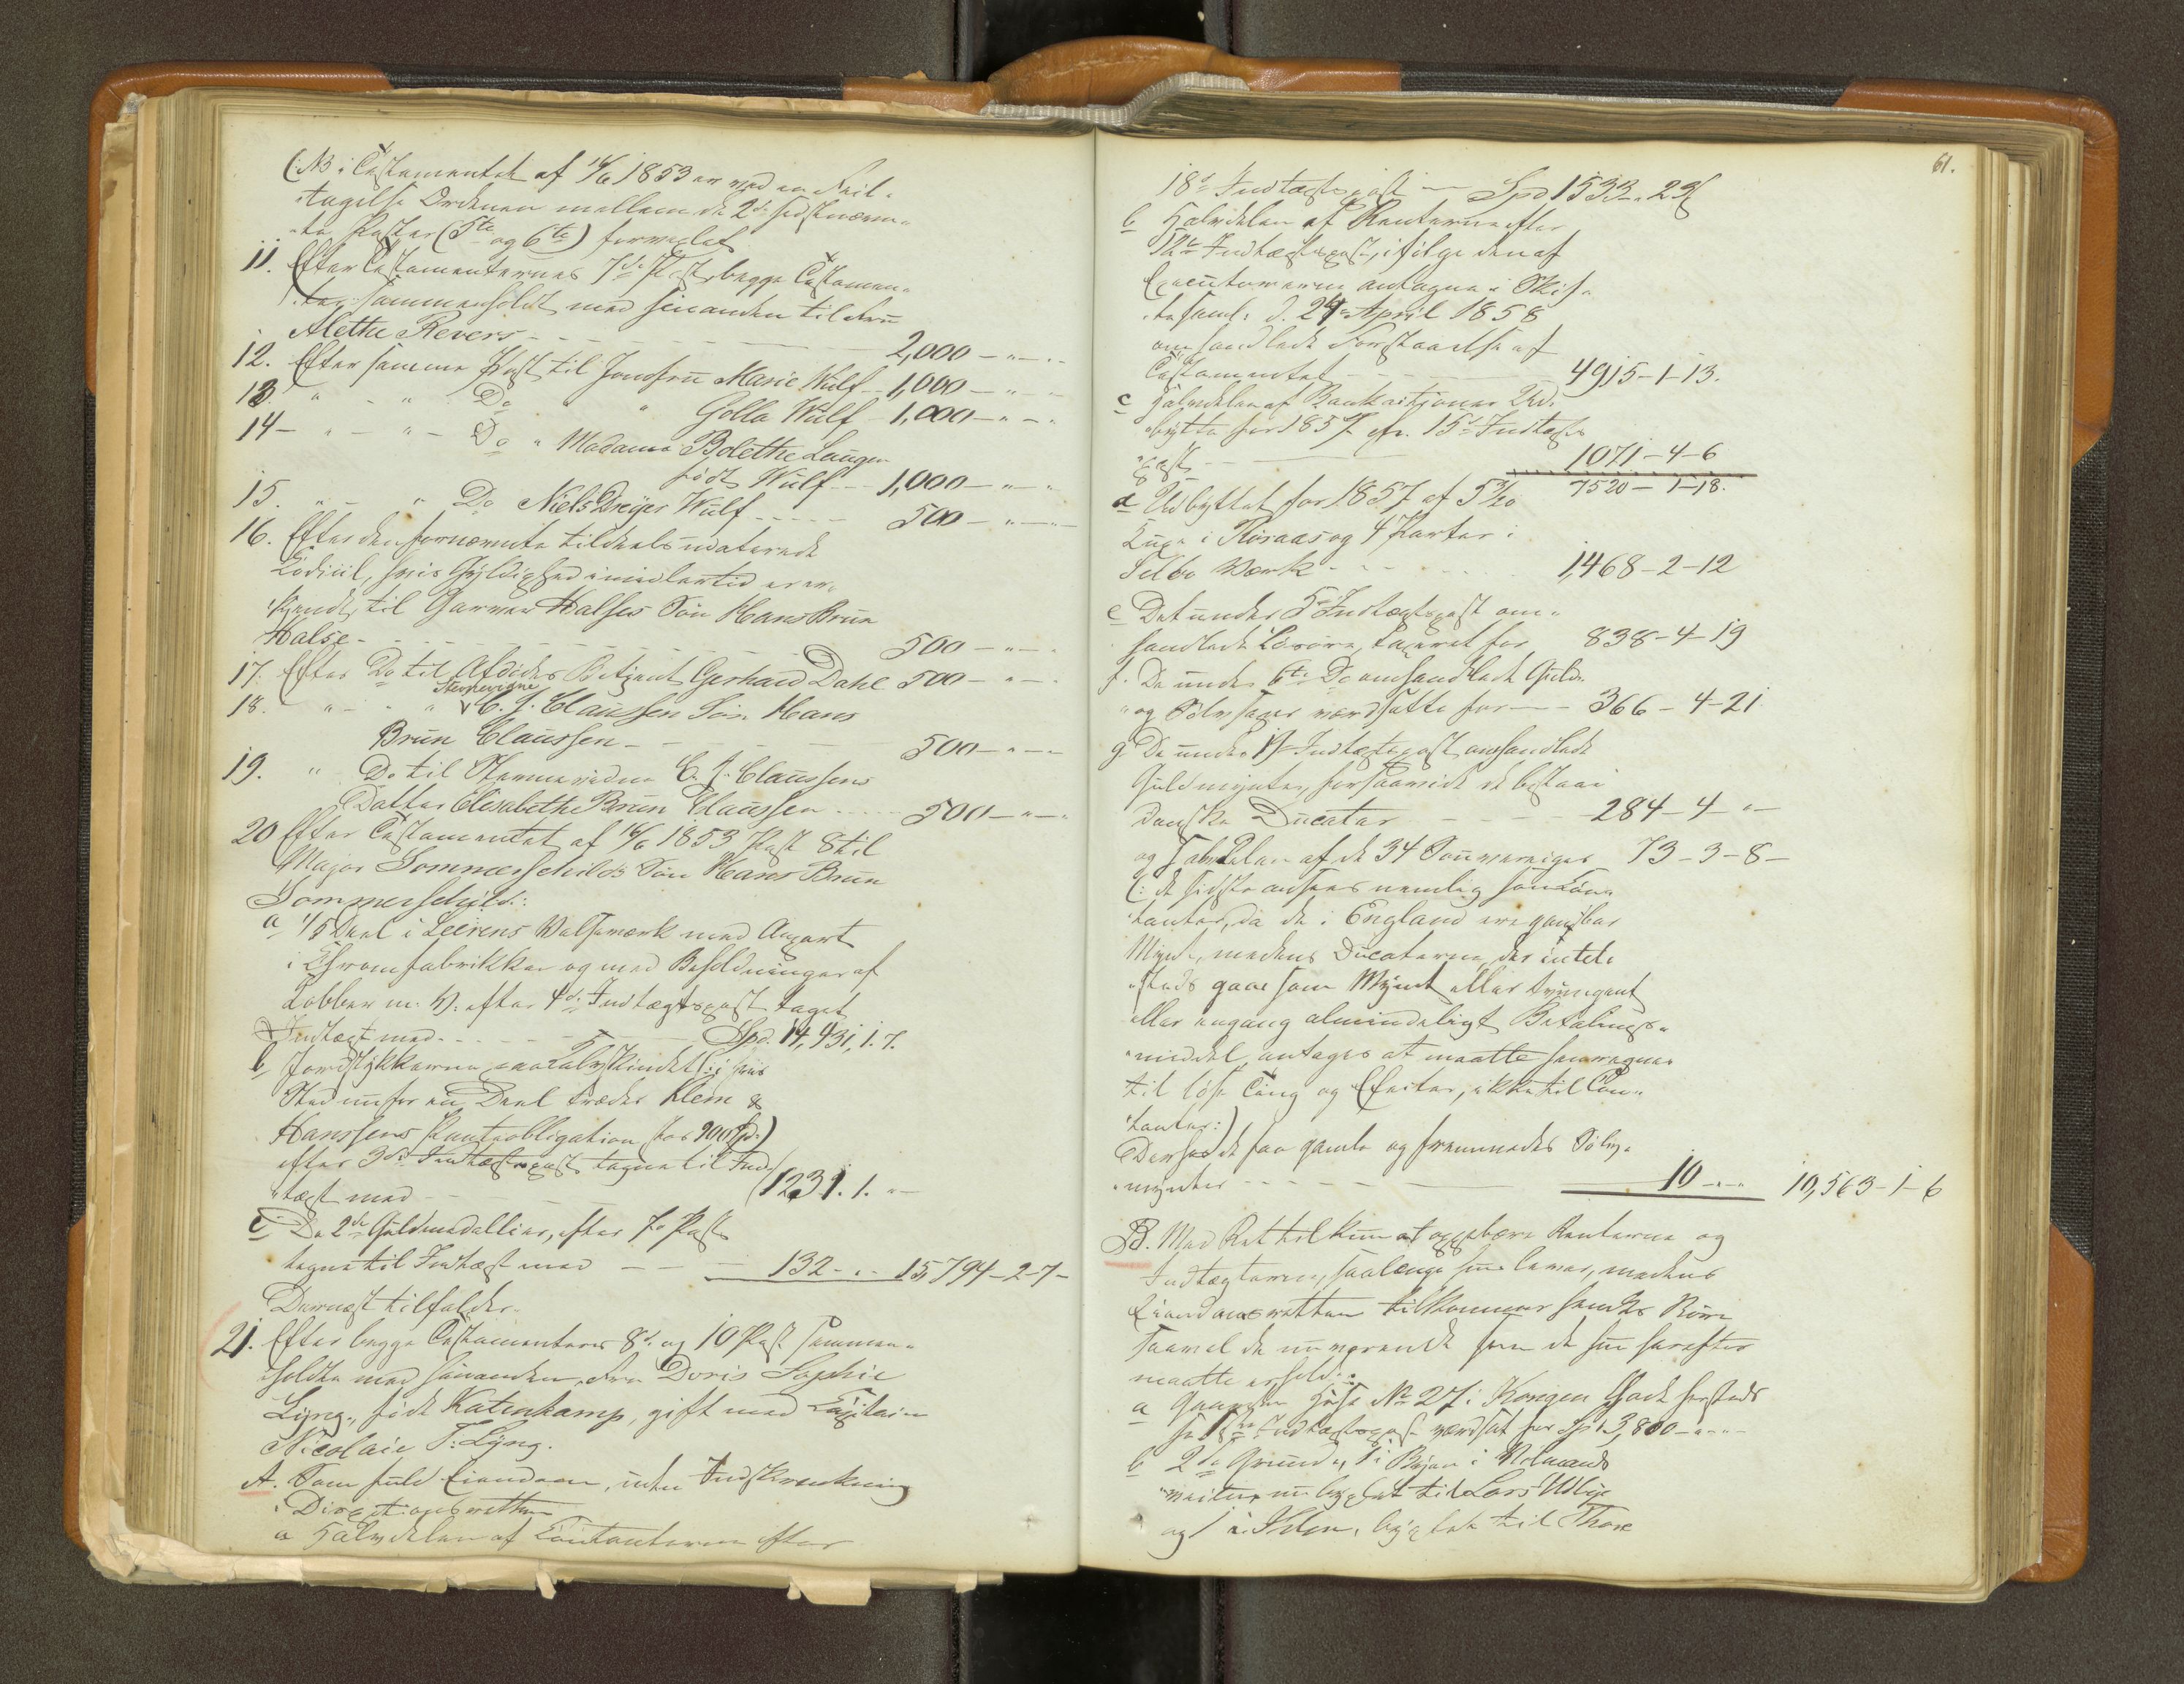 (: NB i Testamentet af 14/6 1853 er ved en Feil-
tagelse Ordenen mellem de 2de sidstnævn-
te Poster (5te og 6te) forvexlet
11. Efter Testamenternes 7de Post, begge Testamen-
ter sammenholdt med hinanden til Fru
Alethe Revers - - - 2,000 - " - "
12. Efter samme Post til Jomfru Marie Wulf - 1,000 - " - "
13. " - " Do " Golla Wulf - 1,000 - " - "
14 - " - " - Do " Madame Bolethe Laugen
født Wulf - - 1,000 - " - "
15. " - " Do Niels Dreyer Wulf - - - 500 - " - "
16. Efter den fornævnte tildeels udaterede
Codicil, hvis Gyldighed imidlertid er er-
kjendt, til Garver Halses Søn Hans Brun
Halse - - - 500 - " - "
17. Efter Do til afdøde Betjent Gerhard Dahl 500 - " - "
18. " - " " Steenvigne C. J. Claussen Søn Hans
Brun Claussen - - - 500 - " - "
19. " Do til C. J. Claussens
Datter Elisabethe Brun Claussen - - - 500 - " - "
20 Efter Testamentet af 14/6 1853 Post 8 til
Major Sommerschilds Søn Hans Brun
Sommerschild:
a 1/5 Deel i Leerens Valseværk med Anpart
i Chromfabrikken og med Beholdninger af
Kobber m. V: efter 4de Indtægtspost taget
Indtægt med - - - Spd. 14,431, 1. 7.
b Jordstykkerne paa Kalvskindet (: i hvis
Sted nu for en Deel træder Klem &
Hanssens Panteobligation for 900 Spd:)
efter 3die Indtægtspost tagne til Ind-
tægt med - - - 1231. 1. "
c De 2de Guldmedallier, efter 7de Post
tagne til Indtægt med - - - 132 - " - " 15,794-2-7-
Dernæst tilfalder
21. Efter begge Testamenternes 8de og 10 Post sammen-
holdte med hinanden, Fru Doris Sophie
Lyng, født Katenkamp, gift med Capitain
Nicolaie T: Lyng.
A. Som fuld Eiendom, uden Indskrænkning
i Dispositionsretten
a Halvdelen af Contanterne efter
61.
18de Indtægtspost - Spd 1533 - " 23
b Halvdelen af Renterne efter
12te Indtægtspost, ifølge den af
Executorerne antagne i Skif-
tesaml: d. 24de April 1858
omhandlede Forstaaelse af
Testamentet - - - 4915-1-13.
c Halvdelen af Bankactiernes Ud-
bytte for 1857 efr. 15de Indtægts
post - - - 1071-4-6
7520-1-18.
d Udbyttet for 1857 af
Kuxe i Røraas og 4 Parter i
Selbo Værk - - - 1,468-2-12
e Det under 5te Indtægtspost om-
handlede Løsøre, taxeret for 838-4-19
f. De under 6te Do omhandlede Guld-
og Sølvsager værdsatte for - - 366-4-21
g De under Indtægtspost omhandlede
Guldmynter, forsaavidt de bestaae i
danske Ducater - - - 284-4- "
og Halvdelen af de 34 Souvereigner 73-3-8-
(: de sidste ansees nemlig som Con-
tanter, da de i England ere gangbar
Mynt, medens Ducaterne, der intet-
steds gaae som Mynt eller
eller engang almindeligt Betalings-
middel, antages at maatte henregnes
til løse Ting og Effecter, ikke til Con-
tanter:)
Dernæst de faa gamle og fremmede Sølv-
mynter - - - 10 - " - " 10,563-1-6
B. Med Ret til kun at oppebære Renterne og
Indtægterne, saalænge hun lever, medens
Eiendomsretten tilkommer hendes Børn
saavel de nuværende som de hun herefter
maatte erholde:
a Gaarden No 27 i Kongens Gade hersteds
Indtægtspost værdsat for Spd 3,800 - " - "
b 2de Grunde, 1 i Byen i
veiten nu bygslet til Lars
og 1 i Ihlen, bygslet til Thore